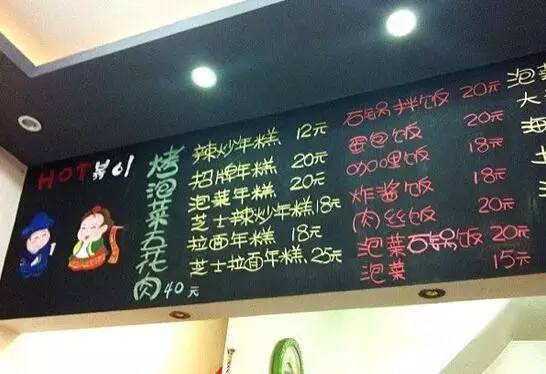 HOT
烤泡菜五花肉40元
辣炒年糕 12元
招牌年糕 20元
泡菜年糕 20元
芝士辣炒年糕18元
拉面年糕 18元
芝士拉面年糕25元
石锅拌饭 20元
蛋包饭 20元
咖喱饭 18元
炸酱饭 18元
肉丝饭 20元
泡菜石锅饭 20元
泡菜 15元
泡菜
大
海